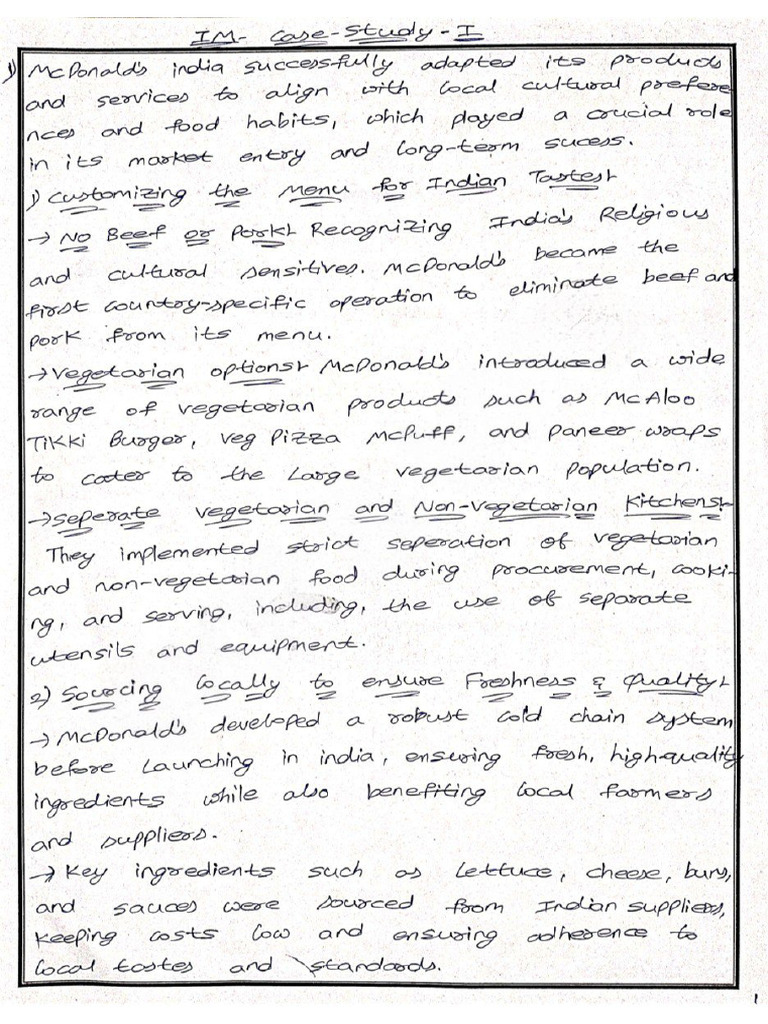 IM- Case-Study-I
1) McDonald's india successfully adapted its products
and services to align with local cultural prefere
nces and food habits, which played a crucial role
in its market entry and long-term sucess.
1) Customizing the Menu for Indian Tastes:-
→ No Beef or Pork:- Recognizing India's Religious
and cultural sensitives. McDonald's became the
first country-specific operation to eliminate beef and
pork from its menu.
→ Vegetarian options:- McDonald's introduced a wide
range of vegetarian products such as McAloo
TIKKi Burger, veg Pizza McPuff, and paneer wraps
to cater to the Large vegetarian population.
→ seperate vegetarian and Non-vegetarian Kitchens:-
They implemented strict seperation of vegetarian
and non-vegetarian food during procurement, cooki-
ng, and serving, including, the use of separate
utensils and equipment.
2) Sourcing locally to ensure Freshness & Quality:-
→ McDonald's developed a robust cold chain system
before Launching in india, ensuring fresh, high-quality
ingredients while also benefiting local farmers
and suppliers.
→ Key ingredients such as Lettuce, cheese, buns,
and sauces were sourced from Indian suppliers,
keeping costs low and ensuring adherence to
local tastes and standards.
1